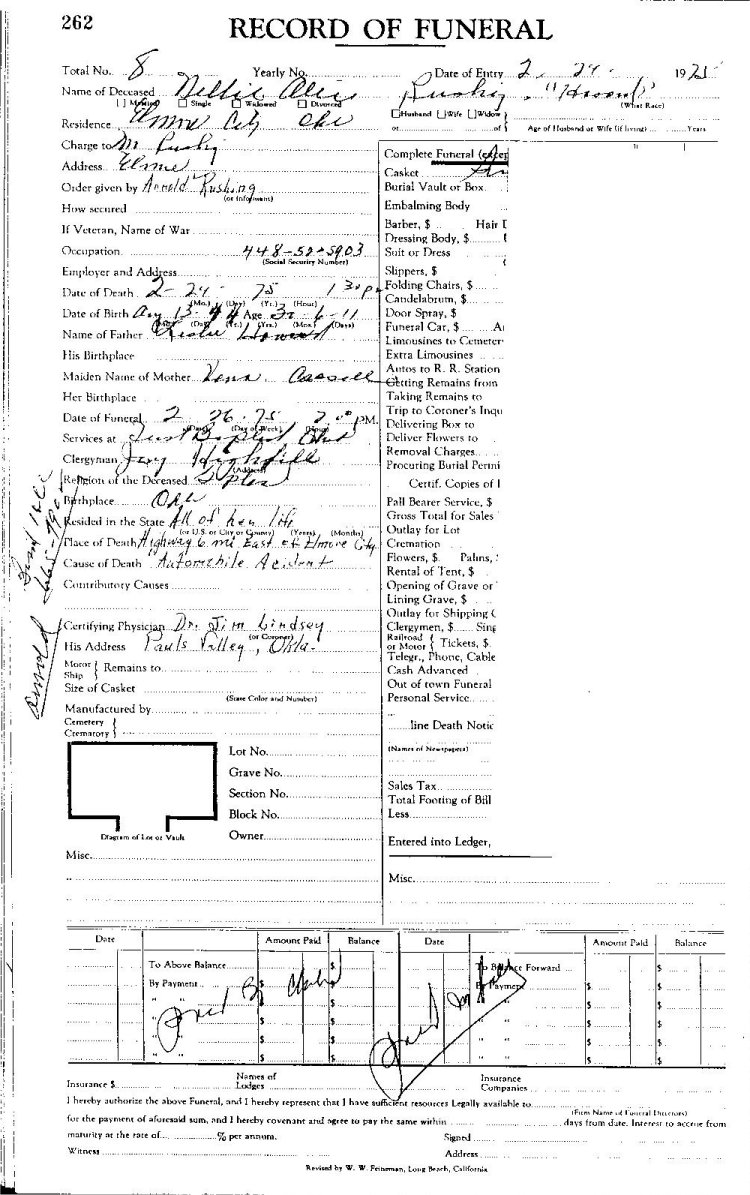 262
RECORD OF FUNERAL
Total No. 8 Yearly No. Date of Entry 2 24 1975
Name of Deceased Nellie Rushing
[ ] Married [ ] Single [ ] Widowed [ ] Divorced (What Race)
[ ] Husband [ ] Wife [ ] Widow
Residence Elmore City or of Age of Husband or Wife (if living) Years
Charge to Rushing
Address Elmore
Order given by Arnold Rushing
(or Informant)
How secured
If Veteran, Name of War
Occupation 448-50-5903
(Social Security Number)
Employer and Address
Date of Death 2-24-75 1 30 p
(Mo.) (Day) (Yr.) (Hour)
Date of Birth 13 44 Age 30-6-11
(Day) (Yr.) (Yrs.) (Mos.) (Days)
Name of Father Howard
His Birthplace
Maiden Name of Mother
Her Birthplace
Date of Funeral 2 26-75 2 00 P.M.
(Day of Week)
Services at First Baptist
Clergyman Highfill
(Address)
Religion of the Deceased
Birthplace Okla
Resided in the State All of her life
(or U.S. or City or County) (Years) (Months)
Place of Death Highway 6 mi East of Elmore City
Cause of Death Automobile Acident
Contributory Causes
Certifying Physician Dr. Jim Lindsey
(or Coroner)
His Address Pauls Valley, Okla.
Motor } Remains to
Ship
Size of Casket
(State Color and Number)
Manufactured by
Cemetery }
Crematory }
Arnold
Lot No.
Grave No.
Section No.
Block No.
Owner
Diagram of Lot or Vault
Misc.
Complete Funeral (excep
Casket
Burial Vault or Box
Embalming Body
Barber, $ Hair D
Dressing Body, $
Suit or Dress
Slippers, $
Folding Chairs, $
Candelabrum, $
Door Spray, $
Funeral Car, $ A
Limousines to Cemeter
Extra Limousines
Autos to R. R. Station
Getting Remains from
Taking Remains to
Trip to Coroner's Inqu
Delivering Box to
Deliver Flowers to
Removal Charges
Procuring Burial Permi
Certif. Copies of
Pall Bearer Service, $
Gross Total for Sales
Outlay for Lot
Cremation
Flowers, $ Palms,
Rental of Tent, $
Opening of Grave or
Lining Grave, $
Outlay for Shipping
Clergymen, $ Sing
Railroad or Motor } Tickets, $
Telegr., Phone, Cable
Cash Advanced
Out of town Funeral
Personal Service
line Death Notic
(Names of Newspapers)
Sales Tax
Total Footing of Bill
Less
Entered into Ledger,
Misc.
Date Amount Paid Balance Date Amount Paid Balance
To Above Balance $ To Balance Forward $
By Payment $ $ By Payment $ $
" " $ $ " " $ $
" " $ $ " " $ $
" " $ $ " " $ $
" " $ $ " " $ $
Insurance $ Names of Lodges Insurance Companies
I hereby authorize the above Funeral, and I hereby represent that I have sufficient resources Legally available to
(Firm Name of Funeral Directors)
for the payment of aforesaid sum, and I hereby covenant and agree to pay the same within days from date. Interest to accrue from
maturity at the rate of % per annum. Signed
Witness Address
Revised by W. W. Feineman, Long Beach, California